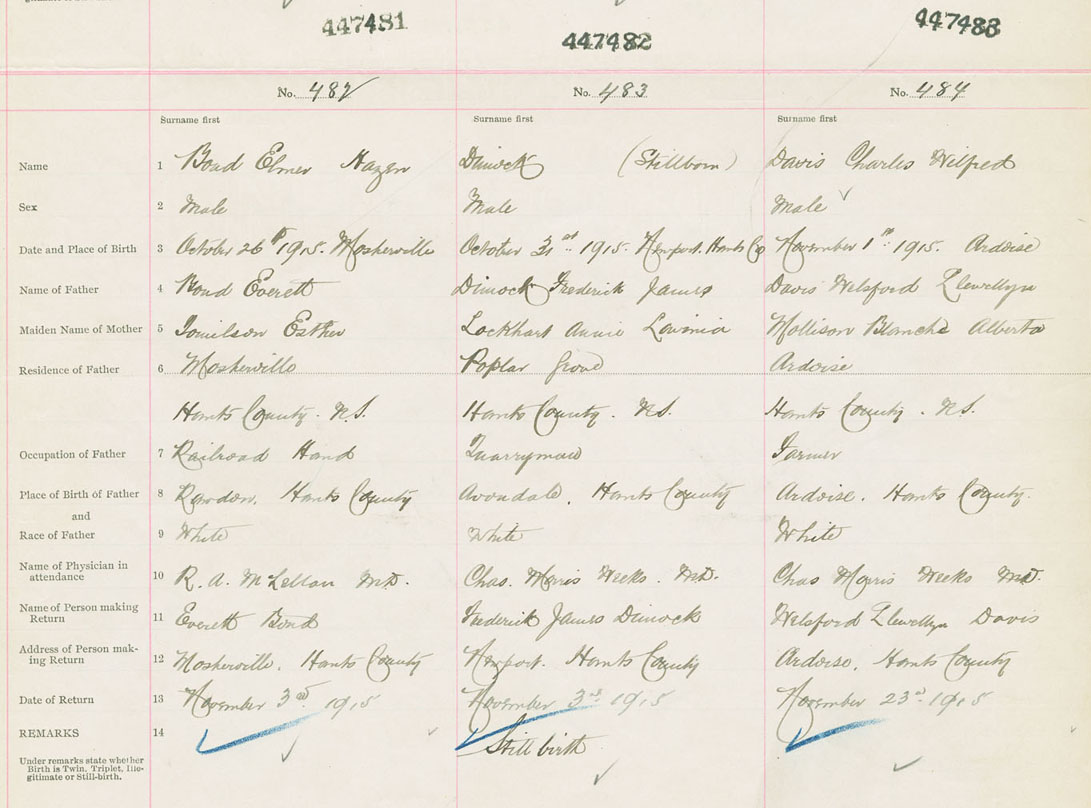 447481
447482
447483
No. 482
No. 483
No. 484
Surname first
Surname first
Surname first
Name 1 Bond Elmer Hazen
Dimock (Stillborn)
Davis Charles Wilfred
Sex 2 Male
Male
Male
Date and Place of Birth 3 October 26th 1915. Mosherville
October 31st 1915. Newport. Hants Co
November 1st 1915. Ardoise
Name of Father 4 Bond Everett
Dimock Frederick James
Davis Welsford Llewellyn
Maiden Name of Mother 5 Tomilson Esther
Lockhart Annie Lavinia
Mollison Blanche Alberta
Residence of Father 6 Mosherville
Poplar Grove
Ardoise
Hants County. N.S.
Hants County. N.S.
Hants County. N.S.
Occupation of Father 7 Railroad Hand
Quarryman
Farmer
Place of Birth of Father 8 Rawdon. Hants County
Avondale. Hants County
Ardoise. Hants County.
and
Race of Father 9 White
White
White
Name of Physician in
attendance 10 R. A. McLellan M.D.
Chas. Morris Weeks. M.D.
Chas Morris Weeks M.D.
Name of Person making
Return 11 Everett Bond
Frederick James Dimock
Welsford Llewellyn Davis
Address of Person mak-
ing Return 12 Mosherville. Hants County
Newport. Hants County
Ardoise. Hants County
Date of Return 13 November 3rd 1915
November 3rd 1915
November 23rd 1915
REMARKS 14
Still birth
Under remarks state whether
Birth is Twin, Triplet, Ille-
gitimate or Still-birth.